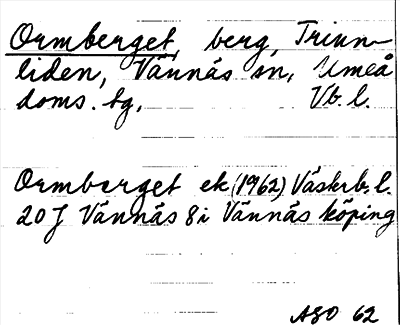 Ormberget, berg, Trinn-
liden, Vännäs sn, Umeå
doms. tg, Vb. l.
Ormberget ek (1962) Västerb. l.
20 J Vännäs 8 i Vännäs köping
ASO 62